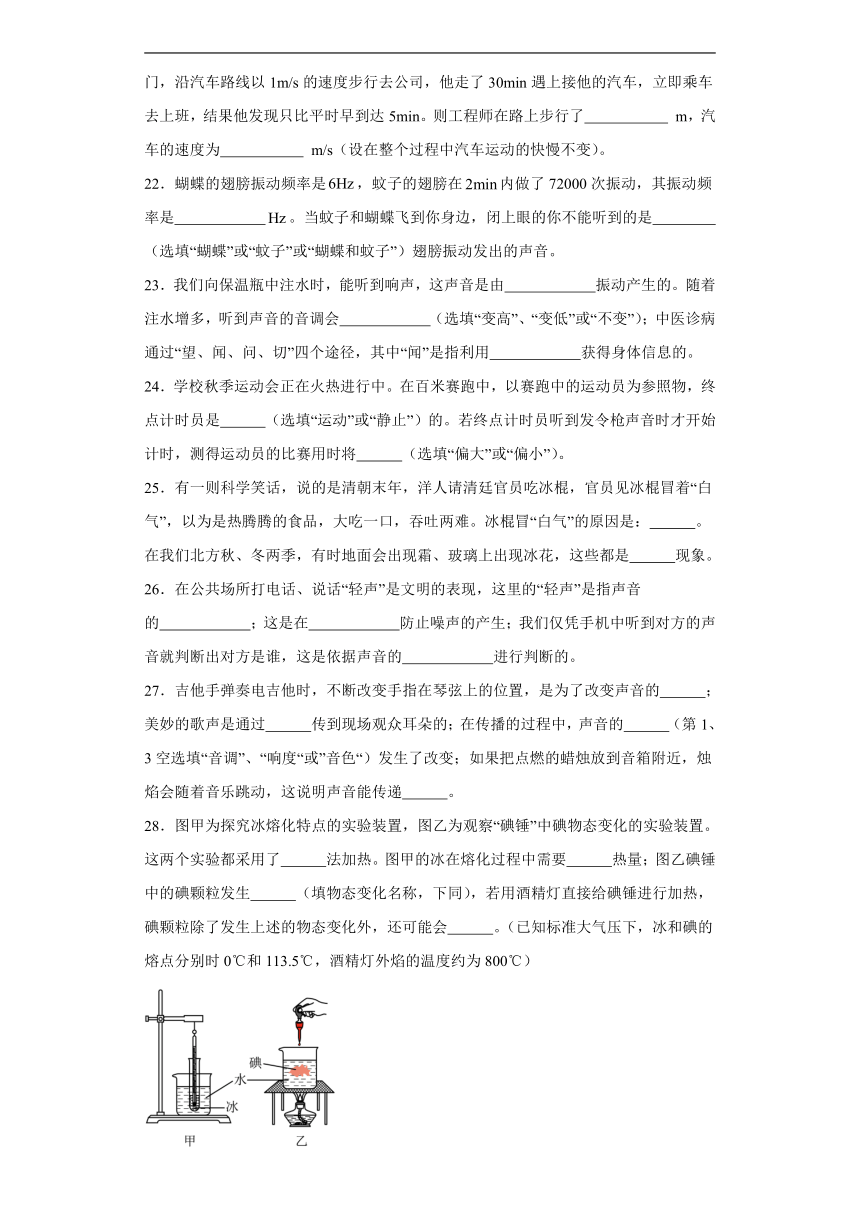 门，沿汽车路线以 1m/s 的速度步行去公司，他走了 30min 遇上接他的汽车，立即乘车
去上班，结果他发现只比平时早到达 5min。则工程师在路上步行了____________ m，汽
车的速度为____________ m/s（设在整个过程中汽车运动的快慢不变）。
22．蝴蝶的翅膀振动频率是6Hz，蚊子的翅膀在2min内做了 72000 次振动，其振动频
率是____________Hz。当蚊子和蝴蝶飞到你身边，闭上眼的你不能听到的是________
（选填“蝴蝶”或“蚊子”或“蝴蝶和蚊子”）翅膀振动发出的声音。
23．我们向保温瓶中注水时，能听到响声，这声音是由____________振动产生的。随着
注水增多，听到声音的音调会____________（选填“变高”、“变低”或“不变”）；中医诊病
通过“望、闻、问、切”四个途径，其中“闻”是指利用____________获得身体信息的。
24．学校秋季运动会正在火热进行中。在百米赛跑中，以赛跑中的运动员为参照物，终
点计时员是______（选填“运动”或“静止”）的。若终点计时员听到发令枪声音时才开始
计时，测得运动员的比赛用时将______（选填“偏大”或“偏小”）。
25．有一则科学笑话，说的是清朝末年，洋人请清廷官员吃冰棍，官员见冰棍冒着“白
气”，以为是热腾腾的食品，大吃一口，吞吐两难。冰棍冒“白气”的原因是：______。
在我们北方秋、冬两季，有时地面会出现霜、玻璃上出现冰花，这些都是______现象。
26．在公共场所打电话、说话“轻声”是文明的表现，这里的“轻声”是指声音
的____________；这是在____________防止噪声的产生；我们仅凭手机中听到对方的声
音就判断出对方是谁，这是依据声音的____________进行判断的。
27．吉他手弹奏电吉他时，不断改变手指在琴弦上的位置，是为了改变声音的______；
美妙的歌声是通过______传到现场观众耳朵的；在传播的过程中，声音的______（第 1、
3 空选填“音调”、“响度“或”音色“）发生了改变；如果把点燃的蜡烛放到音箱附近，烛
焰会随着音乐跳动，这说明声音能传递______。
28．图甲为探究冰熔化特点的实验装置，图乙为观察“碘锤”中碘物态变化的实验装置。
这两个实验都采用了______法加热。图甲的冰在熔化过程中需要______热量；图乙碘锤
中的碘颗粒发生______（填物态变化名称，下同），若用酒精灯直接给碘锤进行加热，
碘颗粒除了发生上述的物态变化外，还可能会______。（已知标准大气压下，冰和碘的
熔点分别时 0℃和 113.5℃，酒精灯外焰的温度约为 800℃）
碘
水
冰
甲
乙